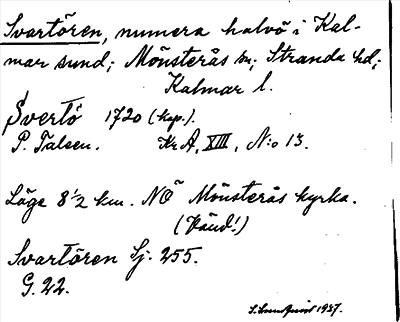 Svartören, numera halvö i Kal-
mar sund; Mönsterås sn; Stranda hd;
Kalmar l.
Svertö 1720 (kop.).
P. Talsen. Kr A, XIII, N:o 13.
Läge 8 1/2 km. NÖ Mönsterås kyrka.
(Vänd!)
Svartören Sj. 255.
G. 22.
S. Lundqvist 1937.